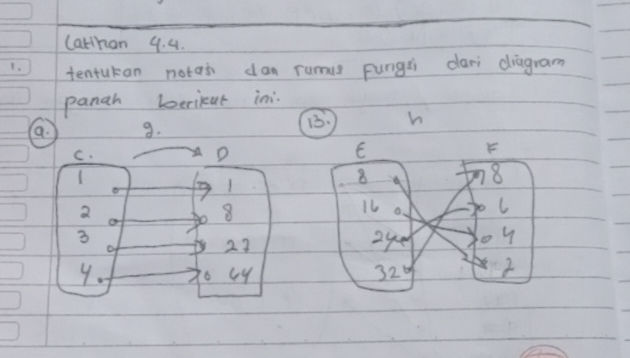 Latihan 4.4.
1. tentukan notasi dan rumus fungsi dari diagram
panah berikut ini.
a. g. B. h
C. D E F
1 1 8 8
2 8 16 6
3 27 24 4
4 64 32 2